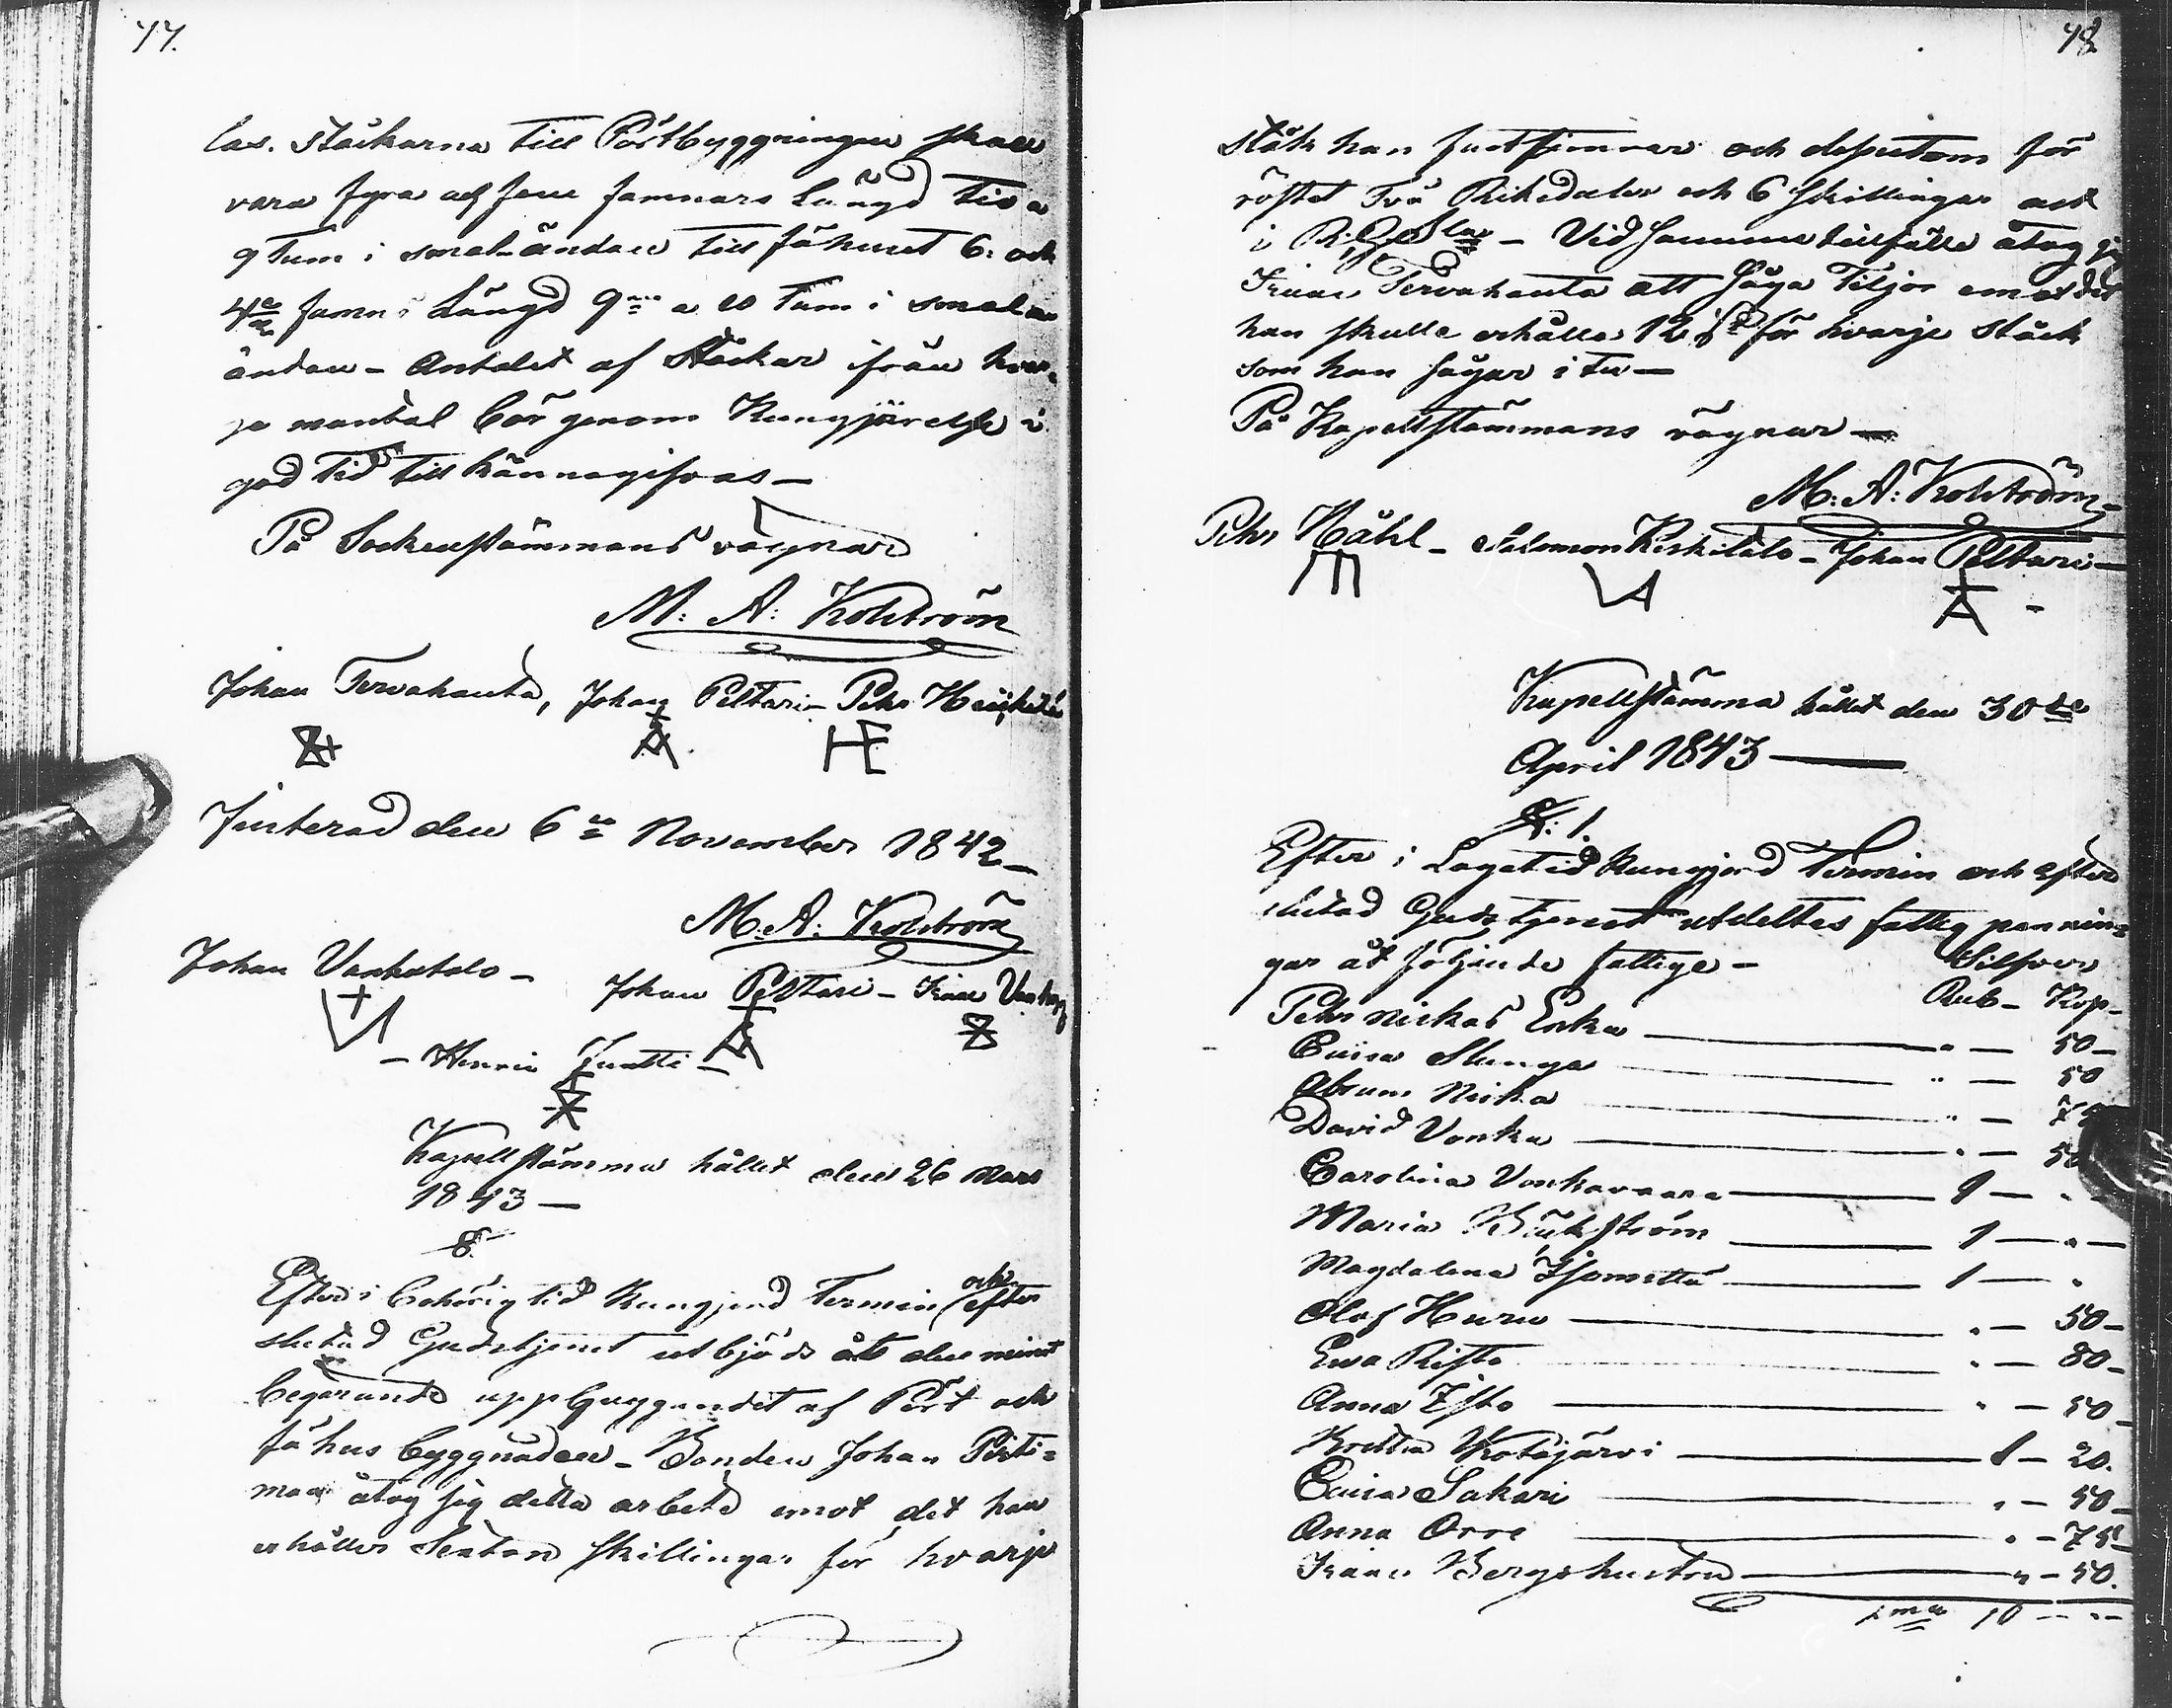 47.
las. Stäckarna till Pörtbyggningen skall
vara fyra och fem famnars Längd tio a
9 Tum i smal-ändan till fähuset 6: och
4ra famns Längd 9 a 10 Tum i smal
ändan - Antalet af Stäckar ifrån hvar-
je mantal bör genom Kungjörelse i
god tid till kännagifvas -
På Sockenstämmans vägnar
M: A: Kohlström
Johan Tervahauta, Johan Peltari - Pehr
Justerad den 6te November 1842 -
M. A: Kohlström
Johan Vanhatalo - Johan Peltari - Isaac
- Henric Juntti -
Kapellstämma hållet den 26 Mars
1843 -
§
Efter i behörig tid Kungjord Termin (och efter
slutad Gudstjenst utbjöds åt den minst
begärande uppbyggandet af Pört och
fähus byggnaden - Bonden Johan
man åtog sig detta arbete emot det han
erhåller Sexton skillingar för hvarje
48.
stäck han fasttimrar och dessutom för
röstet Två Riksdaler och 6 Skillingar allt
i - Vid samma tillfälle åtog sig
Isaac Tervahauta att såga Tiljor emot det
han skulle erhålla 12 för hvarje stäck
som han sågar i tu -
På Kapellstämmans vägnar -
M: A: Kohlström -
Pehr Ståhl - Salomon Keskitalo - Johan Peltari -
Kapellstämma hållet den 30de
April 1843 -
§: 1.
Efter i Laga tid Kungjord Termin och efter
slutad Gudstjenst utdeltes fattig pennin-
gar åt följande fattige - Silfver
Rub - Kop -
Pehr Niskas Enka - " - 50 -
Caisa Slunga - " - 50
Abram Niska - " -
David Vonka - " - 50
Carolina Vonkavaara - 1 - "
Maria Bäckström - 1 - " -
Magdalena Isometsä - 1 - "
Olof Huru - " - 50 -
Ewa Risto - " - 80 -
Anna Isto - " - 50 -
Kotajärvi - 1 - 20.
Caisa Sakari - " - 50 -
Anna Orre - " - 75 -
Isaac Bergs hustru - " - 50.
Sma 10 - " -